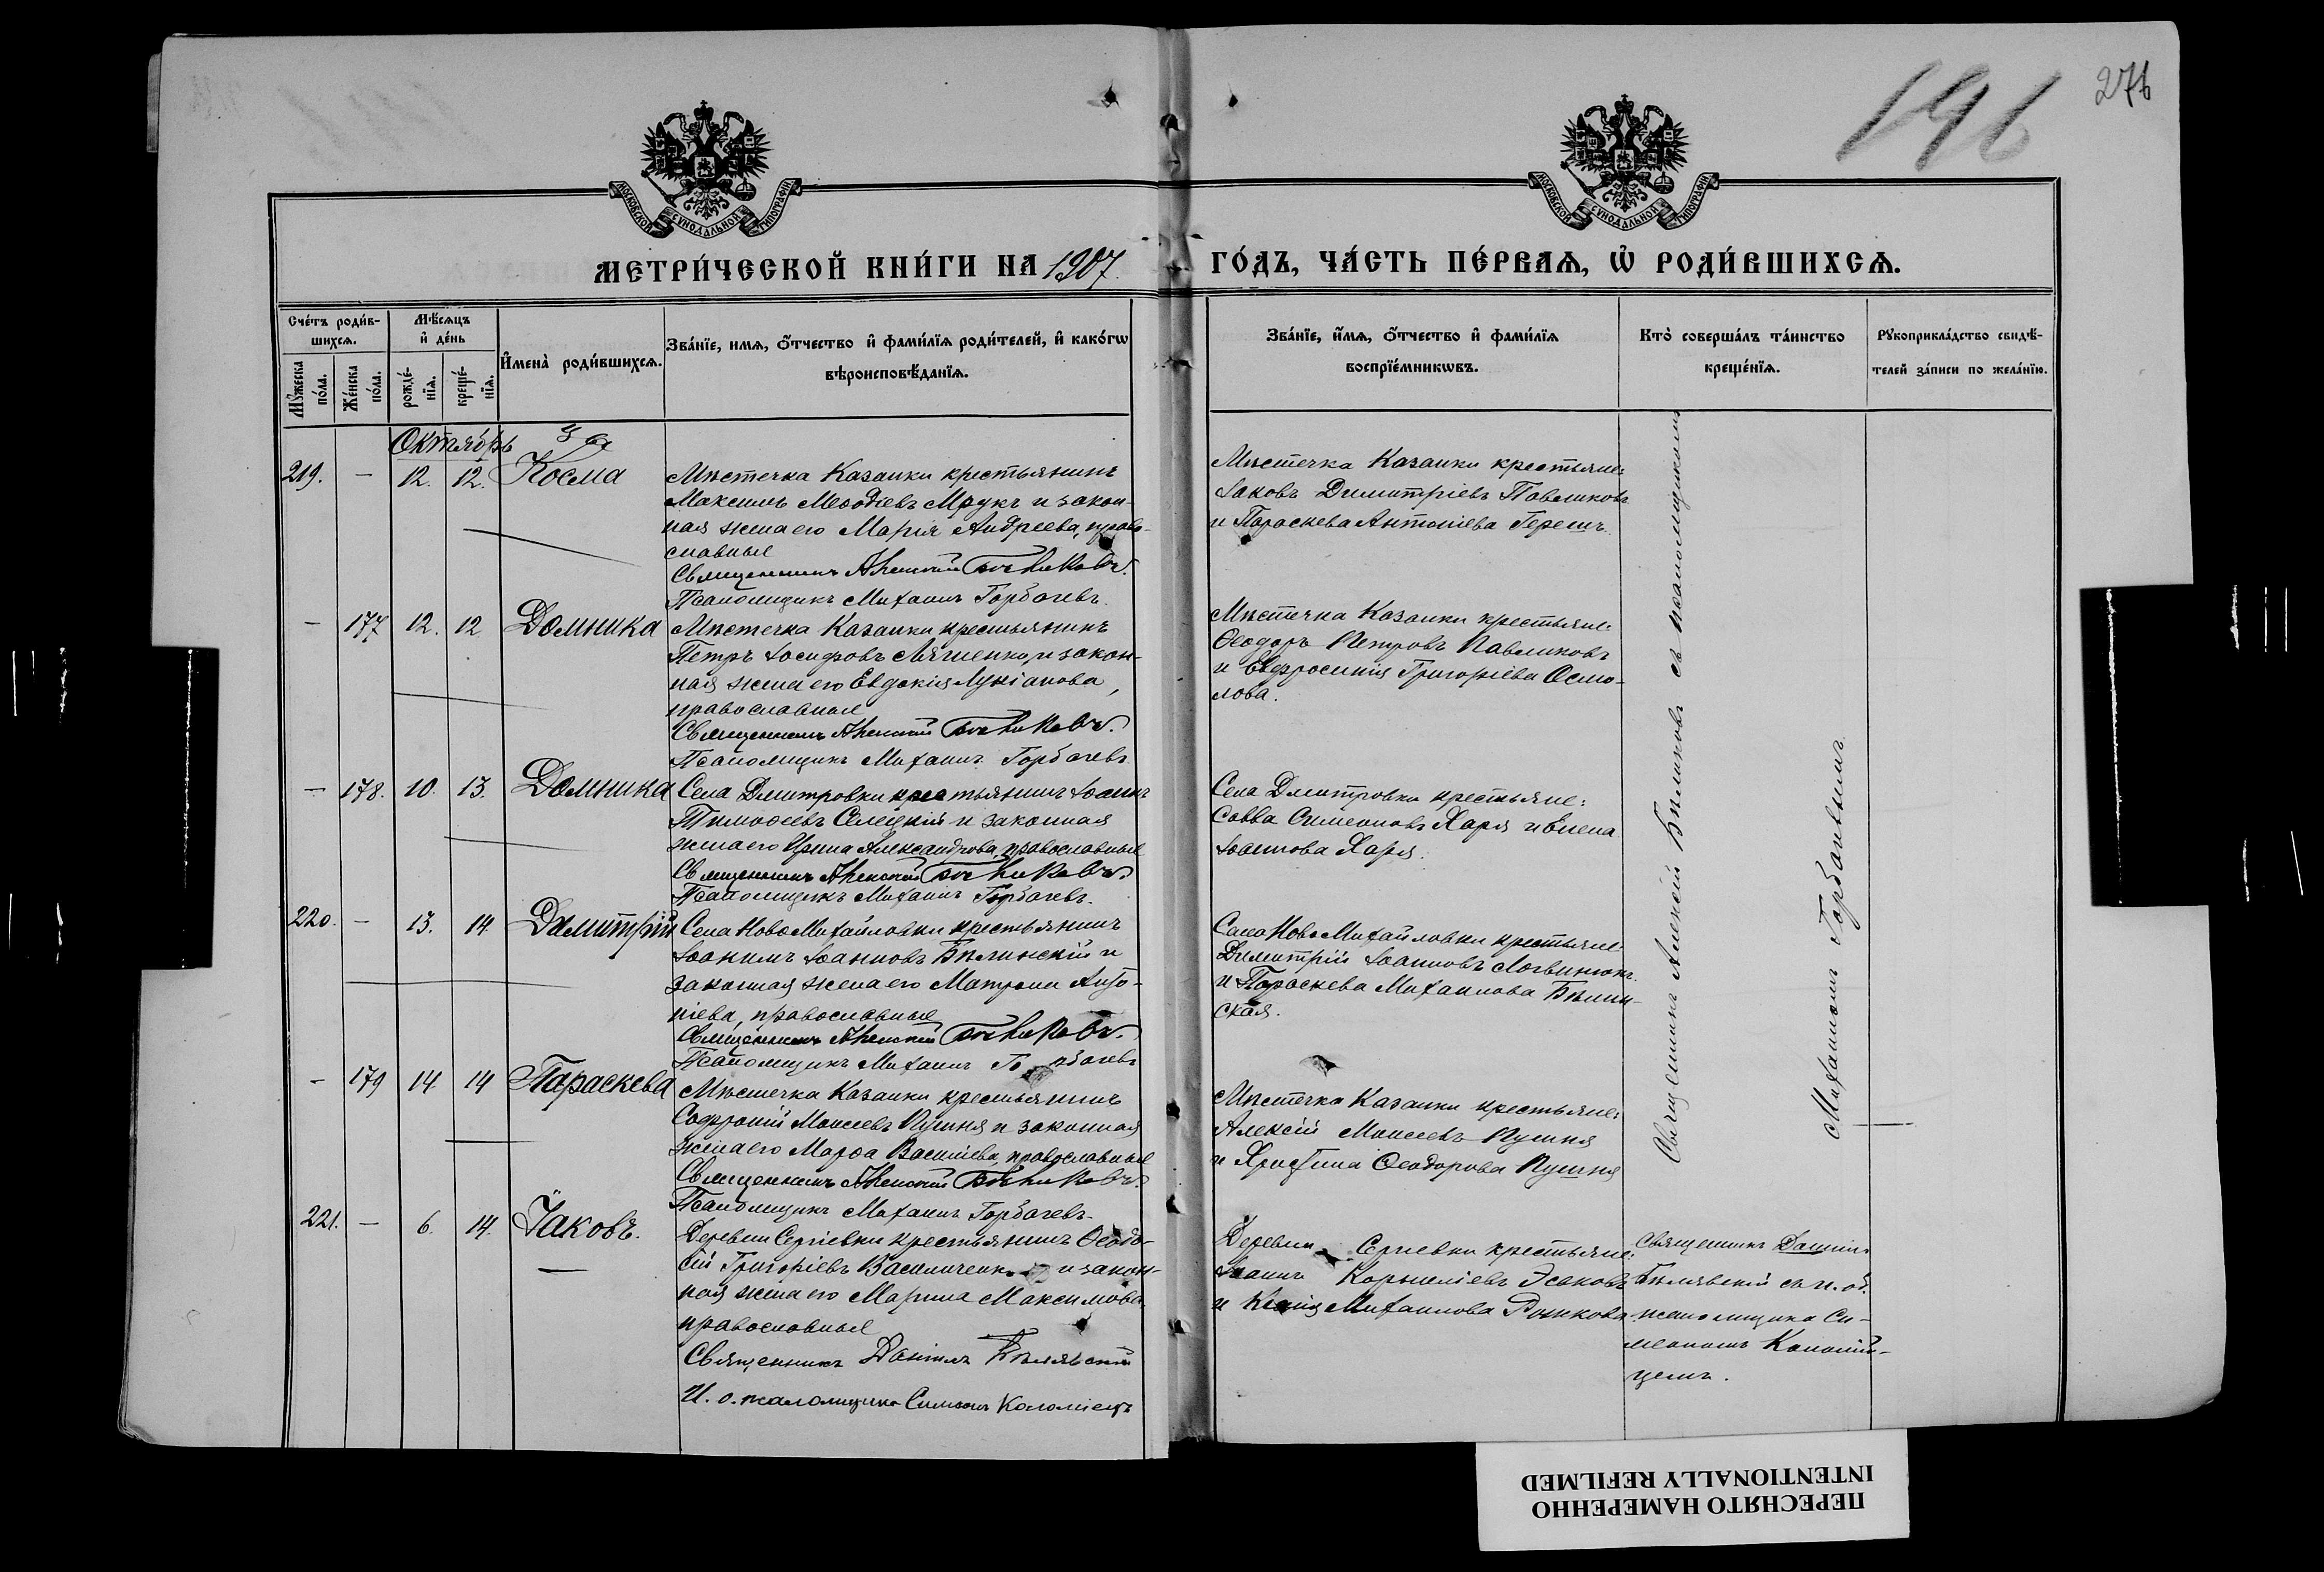 196
276
МОСКОВСКОЙ СѴНОДАЛЬНОЙ ТИПОГРАФІИ
МОСКОВСКОЙ СѴНОДАЛЬНОЙ ТИПОГРАФІИ
МЕТРИ́ЧЕСКОЙ КНИ́ГИ НА 1907.
ГО́ДЪ, ЧА́СТЬ ПЕ́РВАѦ, Ѡ РОДИ́ВШИХСѦ.
Сче́тъ роди́в-
шихсѧ.
Мꙋ́жеска по́ла.
Же́нска по́ла.
Мѣ́сѧцъ
и҆ де́нь
рожде́-
нїѧ.
креще́-
нїѧ.
И҆мена̀ роди́вшихсѧ.
Зва́нїе, имѧ, ѻ҆́тчество и҆ фами́лїѧ роди́телей, и҆ како́гѡ
вѣроисповѣ́данїѧ.
Зва́нїе, и҆́мѧ, ѻ҆́тчество и҆ фами́лїѧ
воспрїе́мникѡвъ.
Кто̀ соверша́лъ та́инство
креще́нїѧ.
Рꙋкоприкла́дство свидѣ́-
телей за́писи по жела́нїю.
Октябрь
219.
—
12.
12.
Косма
Мѣстечка Казанки крестьянинъ
Максимъ Меѳодіевъ Мрукъ и закон-
ная жена его Марія Андреева, право-
славные
Священникъ Алексій Бѣликовъ.
Псаломщикъ Михаилъ Горбачевъ.
Мѣстечка Казанки крестьяне:
Іаковъ Димитріевъ Павликовъ
и Параскева Антоніева
—
177
12.
12
Домника
Мѣстечка Казанки крестьянинъ
Петръ Іосифовъ Ляшенко, и закон-
ная жена его Евдокія Лукіанова,
православные
Священникъ Алексій Бѣликовъ.
Псаломщикъ Михаилъ Горбачевъ
Мѣстечка Казанки крестьяне:
Ѳеодоръ Петровъ Павликовъ
и Евфросинія Григоріева Осмо-
лова.
—
178.
10.
13.
Домника
Села Дмитровки крестьянинъ Іоаннъ
Тимоѳеевъ Селецкій и законная
жена его Ирина Александрова, православные
Священникъ Алексій Бѣликовъ.
Псаломщикъ Михаилъ Горбачевъ.
Села Дмитровки крестьяне:
Савва Симеоновъ Харя и Елена
Іоаннова Харя.
220.
—
13.
14
Димитрій
Села НовоМихайловки крестьянинъ
Іоакимъ Іоанновъ Бѣлинскій и
законная жена его Матрона Анто-
ніева, православные
Священникъ Алексій Бѣликовъ.
Псаломщикъ Михаилъ Горбачевъ
Села НовоМихайловки крестьяне:
Димитрій Іоанновъ Логвинюкъ
и Параскева Михаилова Бѣлин-
ская.
—
179
14
14
Параскева
Мѣстечка Казанки крестьянинъ
Софроній Моисеевъ Пушня и законная
жена его Марѳа Василіева, православные
Священникъ Алексій Бѣликовъ.
Псаломщикъ Михаилъ Горбачевъ.
Мѣстечка Казанки крестьяне:
Алексій Моисеевъ Пушня
и Христина Ѳеодорова Пушня
221.
—
6.
14.
Іаковъ.
Деревни Сергіевки крестьянинъ Ѳеодо-
сій Григоріевъ Василиченко и закон-
ная жена его Марина Максимова
православные
Священникъ Даніилъ Бѣлявскій
И. о. псаломщика Симеонъ Коломіецъ
Деревни Сергіевки крестьяне:
Іоаннъ Корниліевъ
и Ксенія Михаилова Рожкова
Священникъ Алексій Бѣликовъ съ псаломщикомъ
Михаиломъ Горбачевымъ.
Священникъ Даніилъ
Бѣлявскій съ и. об.
псаломщика Си-
меономъ Коломій-
цемъ.
ПЕРЕСНЯТО НАМЕРЕННО
INTENTIONALLY REFILMED